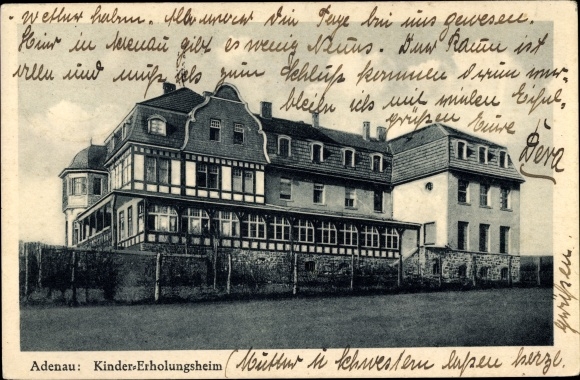 wetter haben. Alle waren die Tage bei uns gewesen.
Hier in Adenau gibt es wenig Neues. Der Raum ist
alle und muß ich zum Schluß kommen drum ver-
bleibe ich mit vielen Eifel-
grüßen Eure
Vera
Adenau: Kinder-Erholungsheim
(Mutter u Schwestern laßen herzl.
grüßen